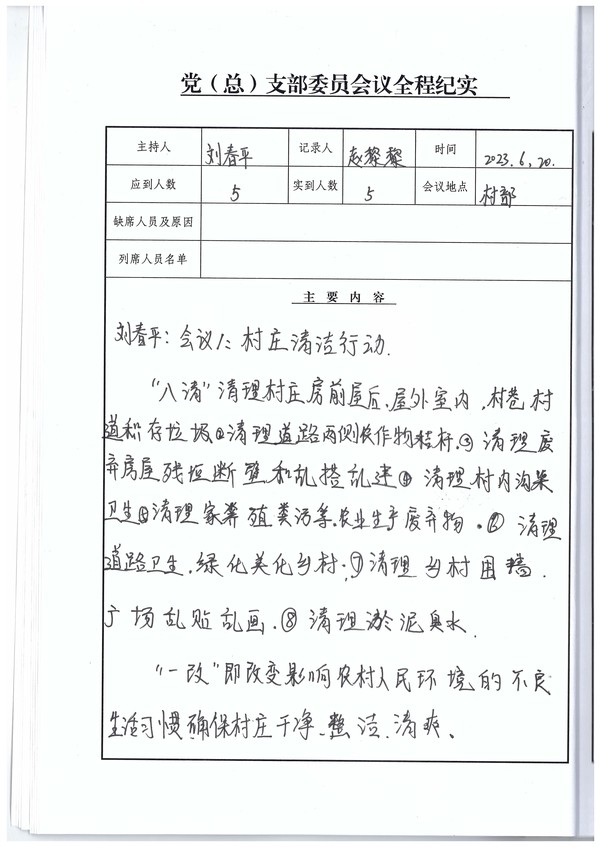 党（总）支部委员会议全程纪实
主持人 刘春平 记录人 赵黎黎 时间 2023.6.20.
应到人数 5 实到人数 5 会议地点 村部
缺席人员及原因
列席人员名单
主要内容
刘春平：会议1: 村庄清洁行动.
"八清"清理村庄房前屋后、屋外室内，村巷村
道积存垃圾②清理道路两侧农作物秸秆.③清理废
弃房屋残垣断壁和乱搭乱建④清理村内沟渠
卫生⑤清理家养殖粪污等，农业生产废弃物.⑥清理
道路卫生，绿化美化乡村.⑦清理乡村围墙.
广场乱贴乱画.⑧清理淤泥臭水.
"一改"即改变影响农村人民环境的不良
生活习惯确保村庄干净、整洁、清爽、